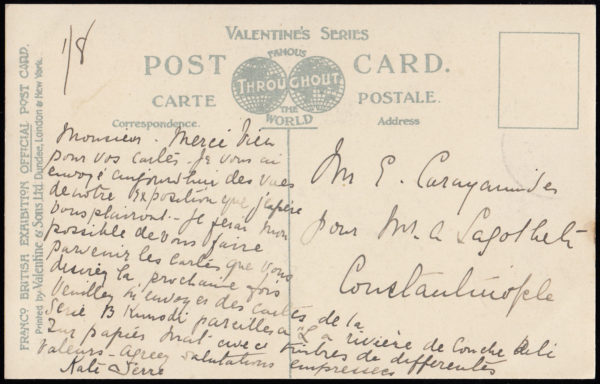 VALENTINE'S SERIES
FAMOUS
POST CARD.
THROUGHOUT
THE
WORLD
CARTE POSTALE.
Correspondence.
Address
FRANCO BRITISH EXHIBITION OFFICIAL POST CARD.
Printed by Valentine & Sons Ltd Dundee, London & New York.
1/8
Monsieur. Merci bien
pour vos cartes. Je vous ai
envoyé aujourd'hui des vues
de notre Exposition que j'espère
vous plairont. Je ferai mon
possible de vous faire
parvenir les cartes que vous
desirez la prochaine fois
Veuillez m'envoyer des cartes de la
Serie B pareilles a "La rivière de
sur papier mat avec timbres de differentes
valeurs. Agreez salutations empressees
Kate
Mr E.
pour Mr. A
Constantinople